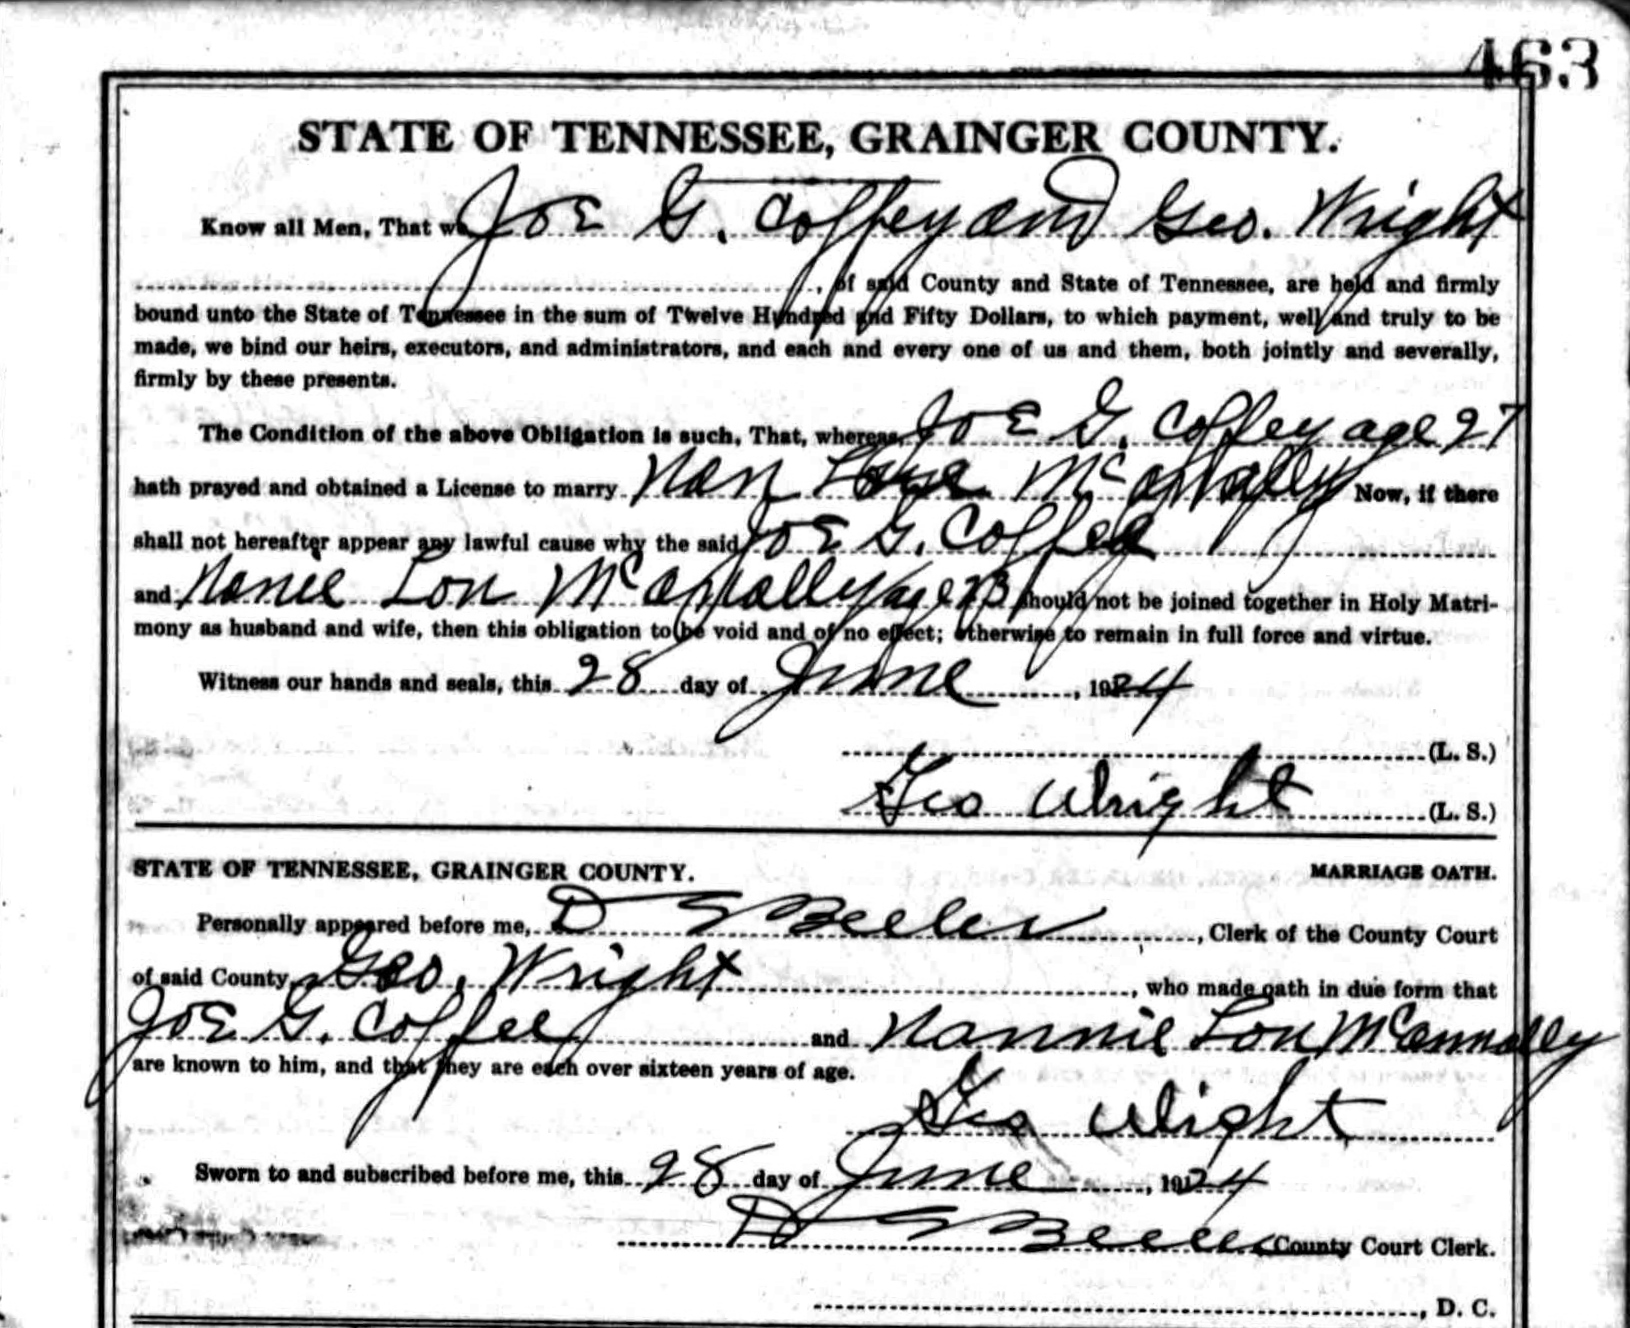 463
STATE OF TENNESSEE, GRAINGER COUNTY.
Know all Men, That we Joe G. Coffey and Geo. Wright
, of said County and State of Tennessee, are held and firmly
bound unto the State of Tennessee in the sum of Twelve Hundred and Fifty Dollars, to which payment, well and truly to be
made, we bind our heirs, executors, and administrators, and each and every one of us and them, both jointly and severally,
firmly by these presents.
The Condition of the above Obligation is such, That, whereas, Joe G. Coffey age 27
hath prayed and obtained a License to marry Nan McAnally Now, if there
shall not hereafter appear any lawful cause why the said Joe G. Coffee
and Nanie Lou McAnally age 23 should not be joined together in Holy Matri-
mony as husband and wife, then this obligation to be void and of no effect; otherwise to remain in full force and virtue.
Witness our hands and seals, this 28 day of June, 1924
(L. S.)
Geo Wright (L. S.)
STATE OF TENNESSEE, GRAINGER COUNTY. MARRIAGE OATH.
Personally appeared before me, D Beeler, Clerk of the County Court
of said County, Geo. Wright, who made oath in due form that
Joe G. Coffee and Nannie Lou McAnnally
are known to him, and that they are each over sixteen years of age.
Geo Wright
Sworn to and subscribed before me, this 28 day of June, 1924
D Beeler County Court Clerk.
, D. C.